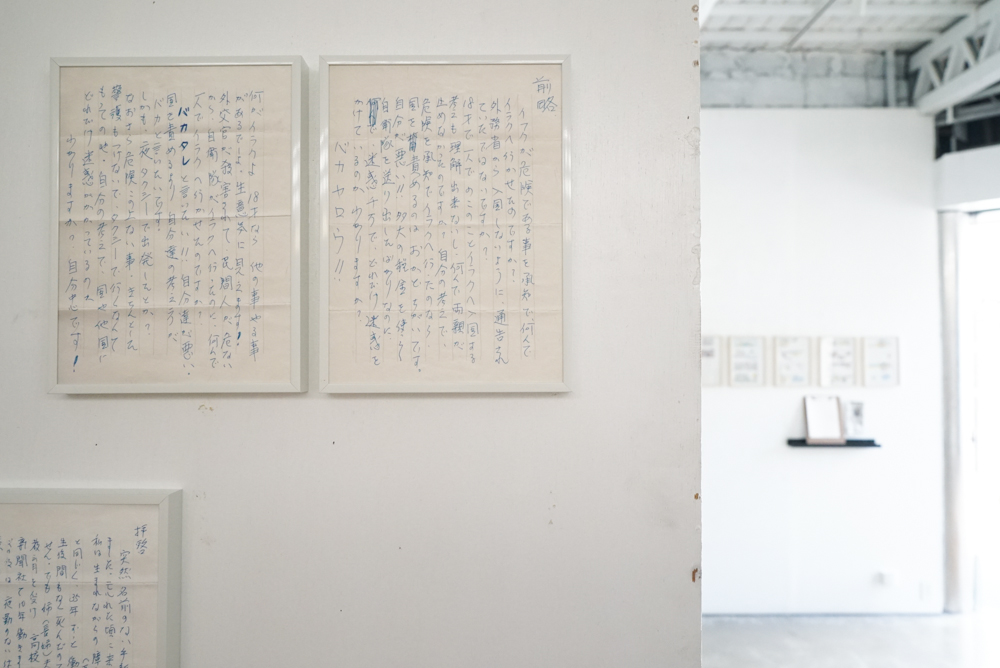 前略
イラクが危険である事を承知で、何んで
イラクへ行かせたのですか?
外務省から入国しないように、通告され
ていたではないですか?
18才で一人でのこのことイラクへ入国する
考えも理解出来ないし、何んで両親が
止めなかったのですか?自分の考えで、
危険を承知でイラクへ行ったのなら、
国を責めるのはおかどちがいです。
自分が悪い!!多大の税金を使って
自衛隊を送り出したばかりなのに
迷惑千万で、どれだけ迷惑を
かけているのか、分かりますか?
バカヤロウ!!
何がイラクよ 18才なら 他の事やる事
があるでしょ 生意気に見えます!
外交官が殺害されて、民間人が危ない
から、自衛隊がイラクへ行ったのに、何んで
一人でイラクへ行かせたのですか?
バカタレと言いたい!!自分達が悪い。
国を責めるより 自分達の考え方が、
バカと言いたいです。
しかも、夜タクシーで出発したとか?、
なおさら危険この上ない事、きちんとした
警護もつけないで、タクシーで行くなんて
もっての他、自分の考えで、国や他国に
どれだけ迷惑がかかっているのか
分かりますか?自分中心です!
拝啓
突然名前のない手紙
私は生まれながらの障
と同じく、35年ずっと働
新聞社で10年働き